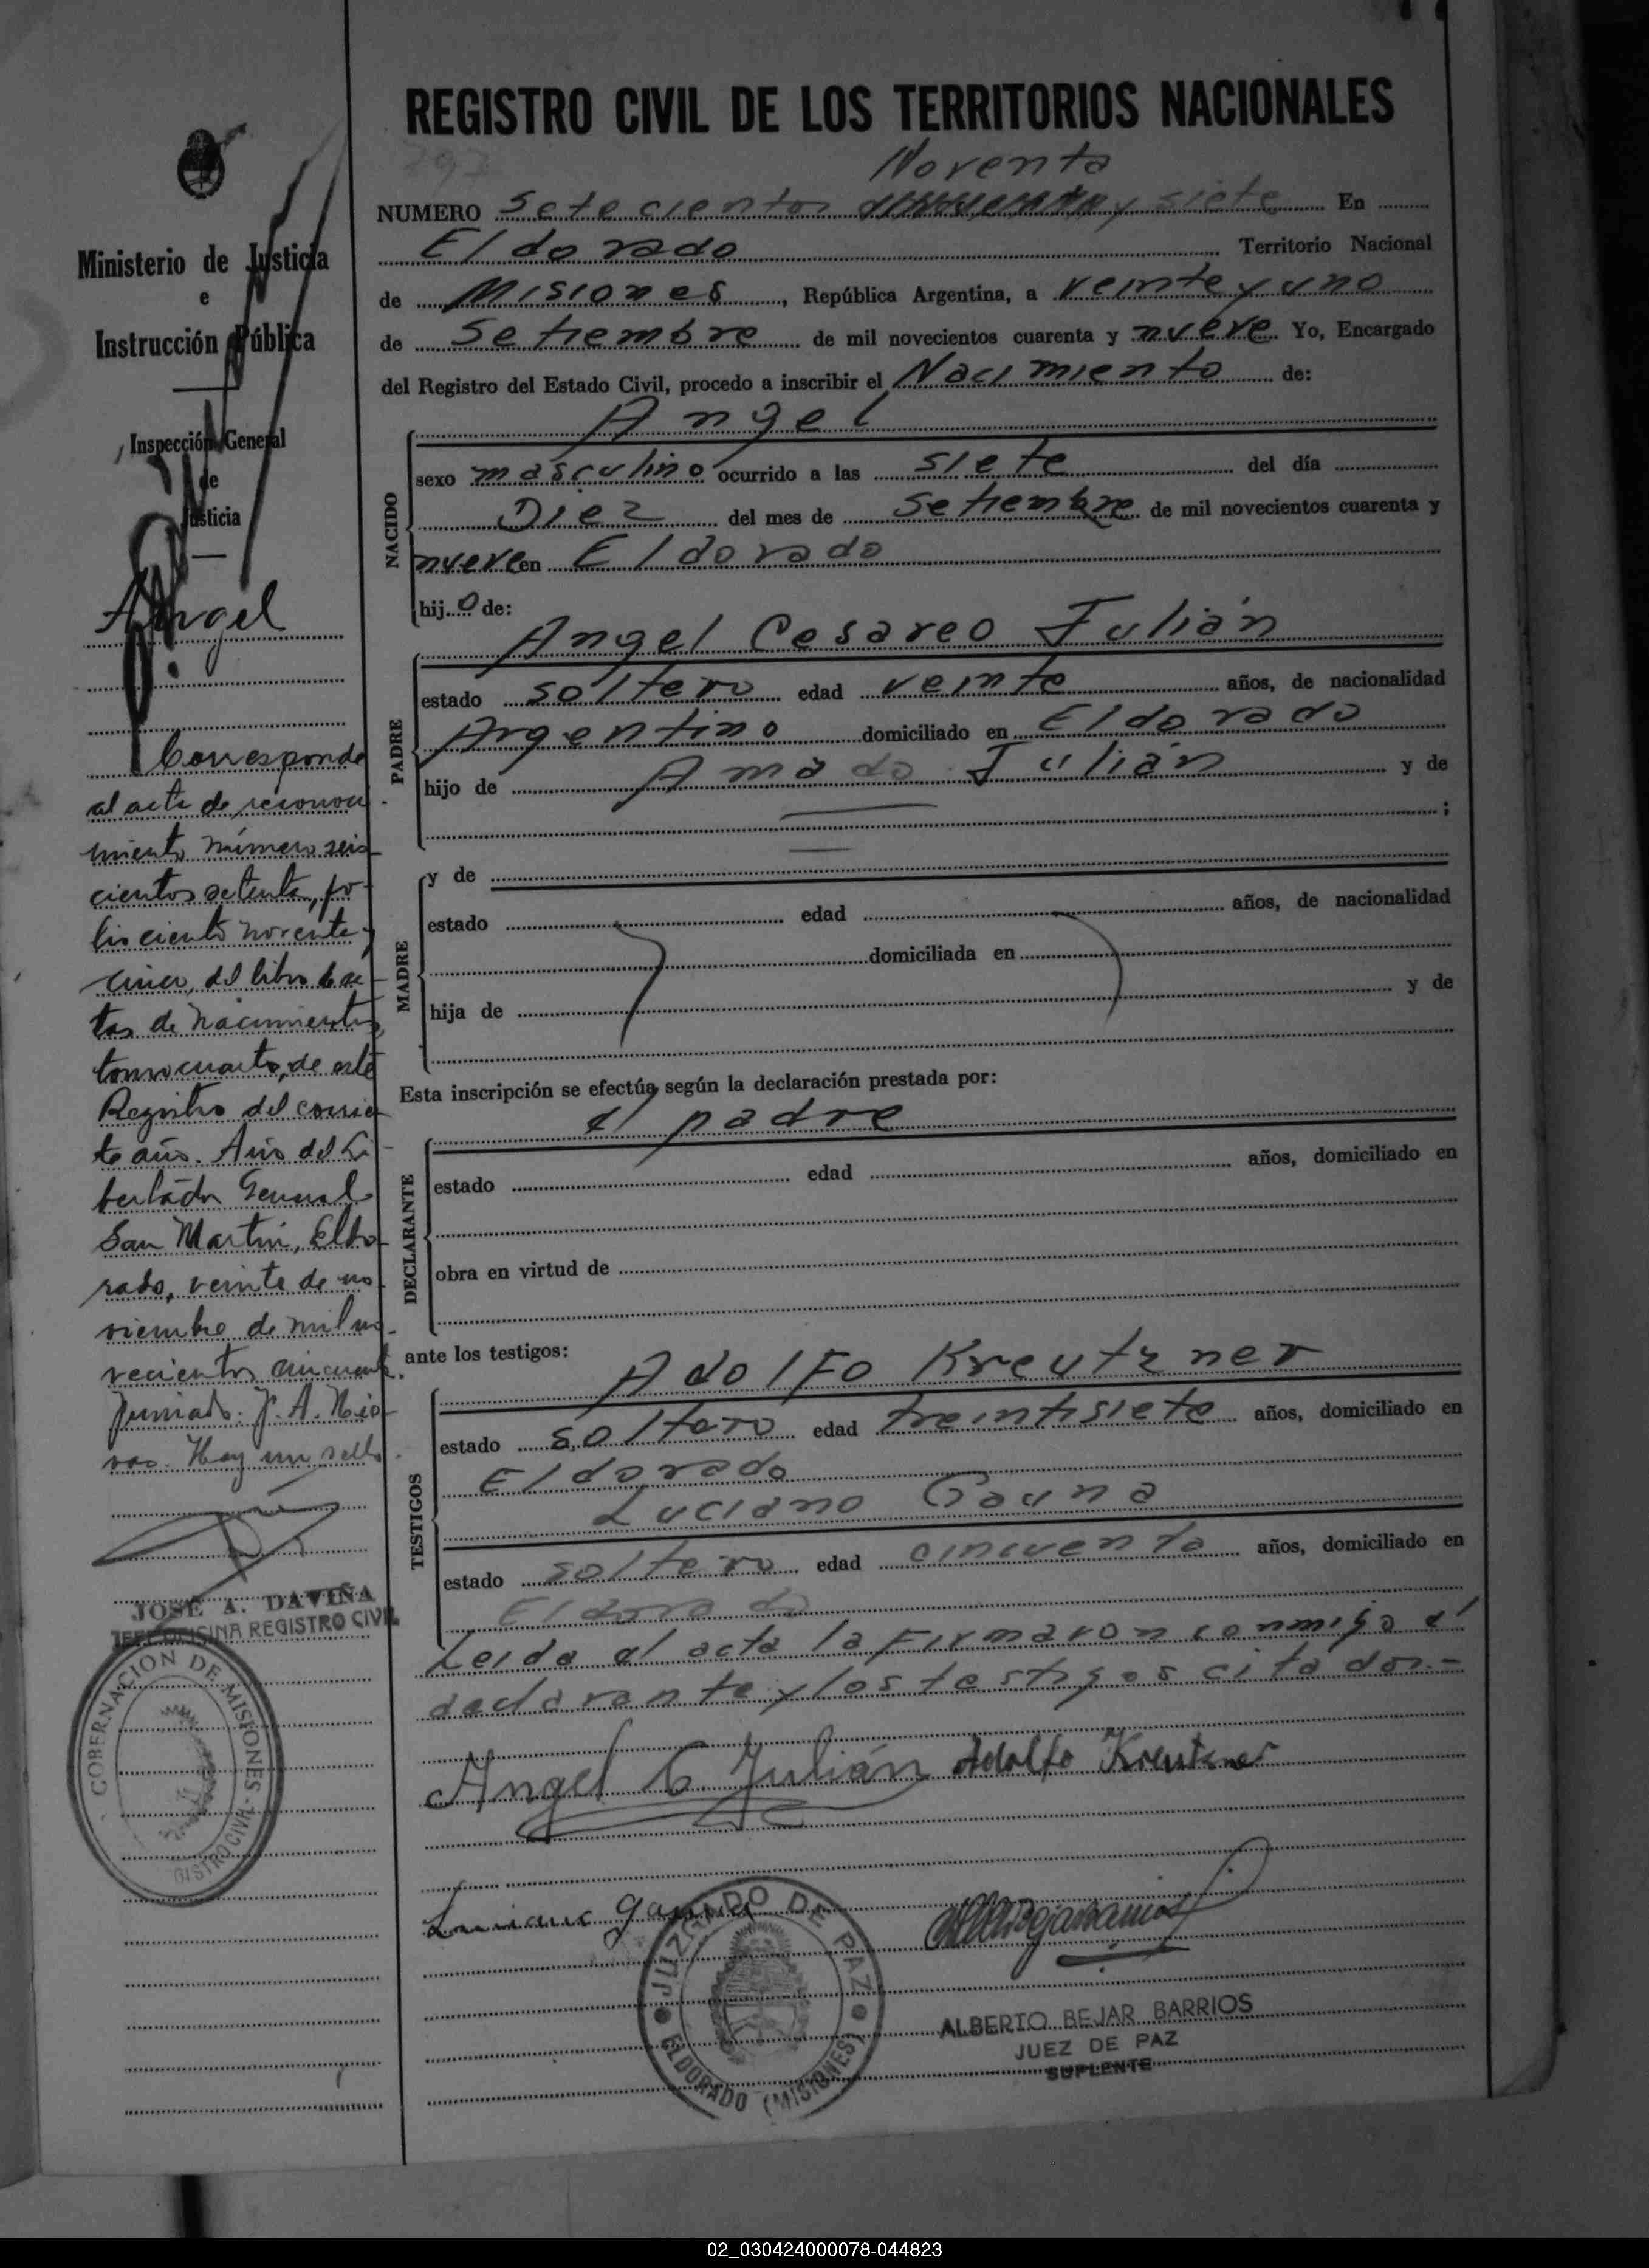 REGISTRO CIVIL DE LOS TERRITORIOS NACIONALES
797
Noventa
NUMERO Setecientos y siete En
Eldorado Territorio Nacional
de Misiones, República Argentina, a veinte y uno
de Setiembre de mil novecientos cuarenta y nueve Yo, Encargado
del Registro del Estado Civil, procedo a inscribir el Nacimiento de:
NACIDO
Angel
sexo masculino ocurrido a las siete del día
Diez del mes de Setiembre de mil novecientos cuarenta y
nueve en Eldorado
hijo de:
PADRE
Angel Cesareo Julián
estado soltero edad veinte años, de nacionalidad
Argentino domiciliado en Eldorado
hijo de Amado Julián y de
;
MADRE
y de
estado edad años, de nacionalidad
domiciliada en
hija de y de
Esta inscripción se efectúa según la declaración prestada por:
DECLARANTE
el padre
estado edad años, domiciliado en
obra en virtud de
ante los testigos:
TESTIGOS
Adolfo Kreutzner
estado soltero edad treintisiete años, domiciliado en
Eldorado
Luciano Gauna
estado soltero edad cincuenta años, domiciliado en
Eldorado
Leida el acta la firmaron conmigo el
declarante y los testigos citados.-
Angel C. Julián Adolfo Kreutzner
Luciano Gauna
JUZGADO DE PAZ
ELDORADO (MISIONES)
ALBERTO BEJAR BARRIOS
JUEZ DE PAZ
SUPLENTE
Ministerio de Justicia
e
Instrucción Pública
Inspección General
de
Justicia
Angel
Corresponde
al acta de reconoci-
miento número seis-
cientos setenta, fo-
lio ciento noventa y
cinco, del libro de ac-
tas de nacimientos,
tomo cuarto, de este
Registro del corrien
te año. Año del Li-
bertador General
San Martin, Eldo-
rado, veinte de no-
viembre de mil no-
vecientos cincuenta.
Firmado: J. A.
Hay un sello.
JOSE A. DAVIÑA
JEFE OFICINA REGISTRO CIVIL
GOBERNACION DE MISIONES - REGISTRO CIVIL
02_030424000078-044823